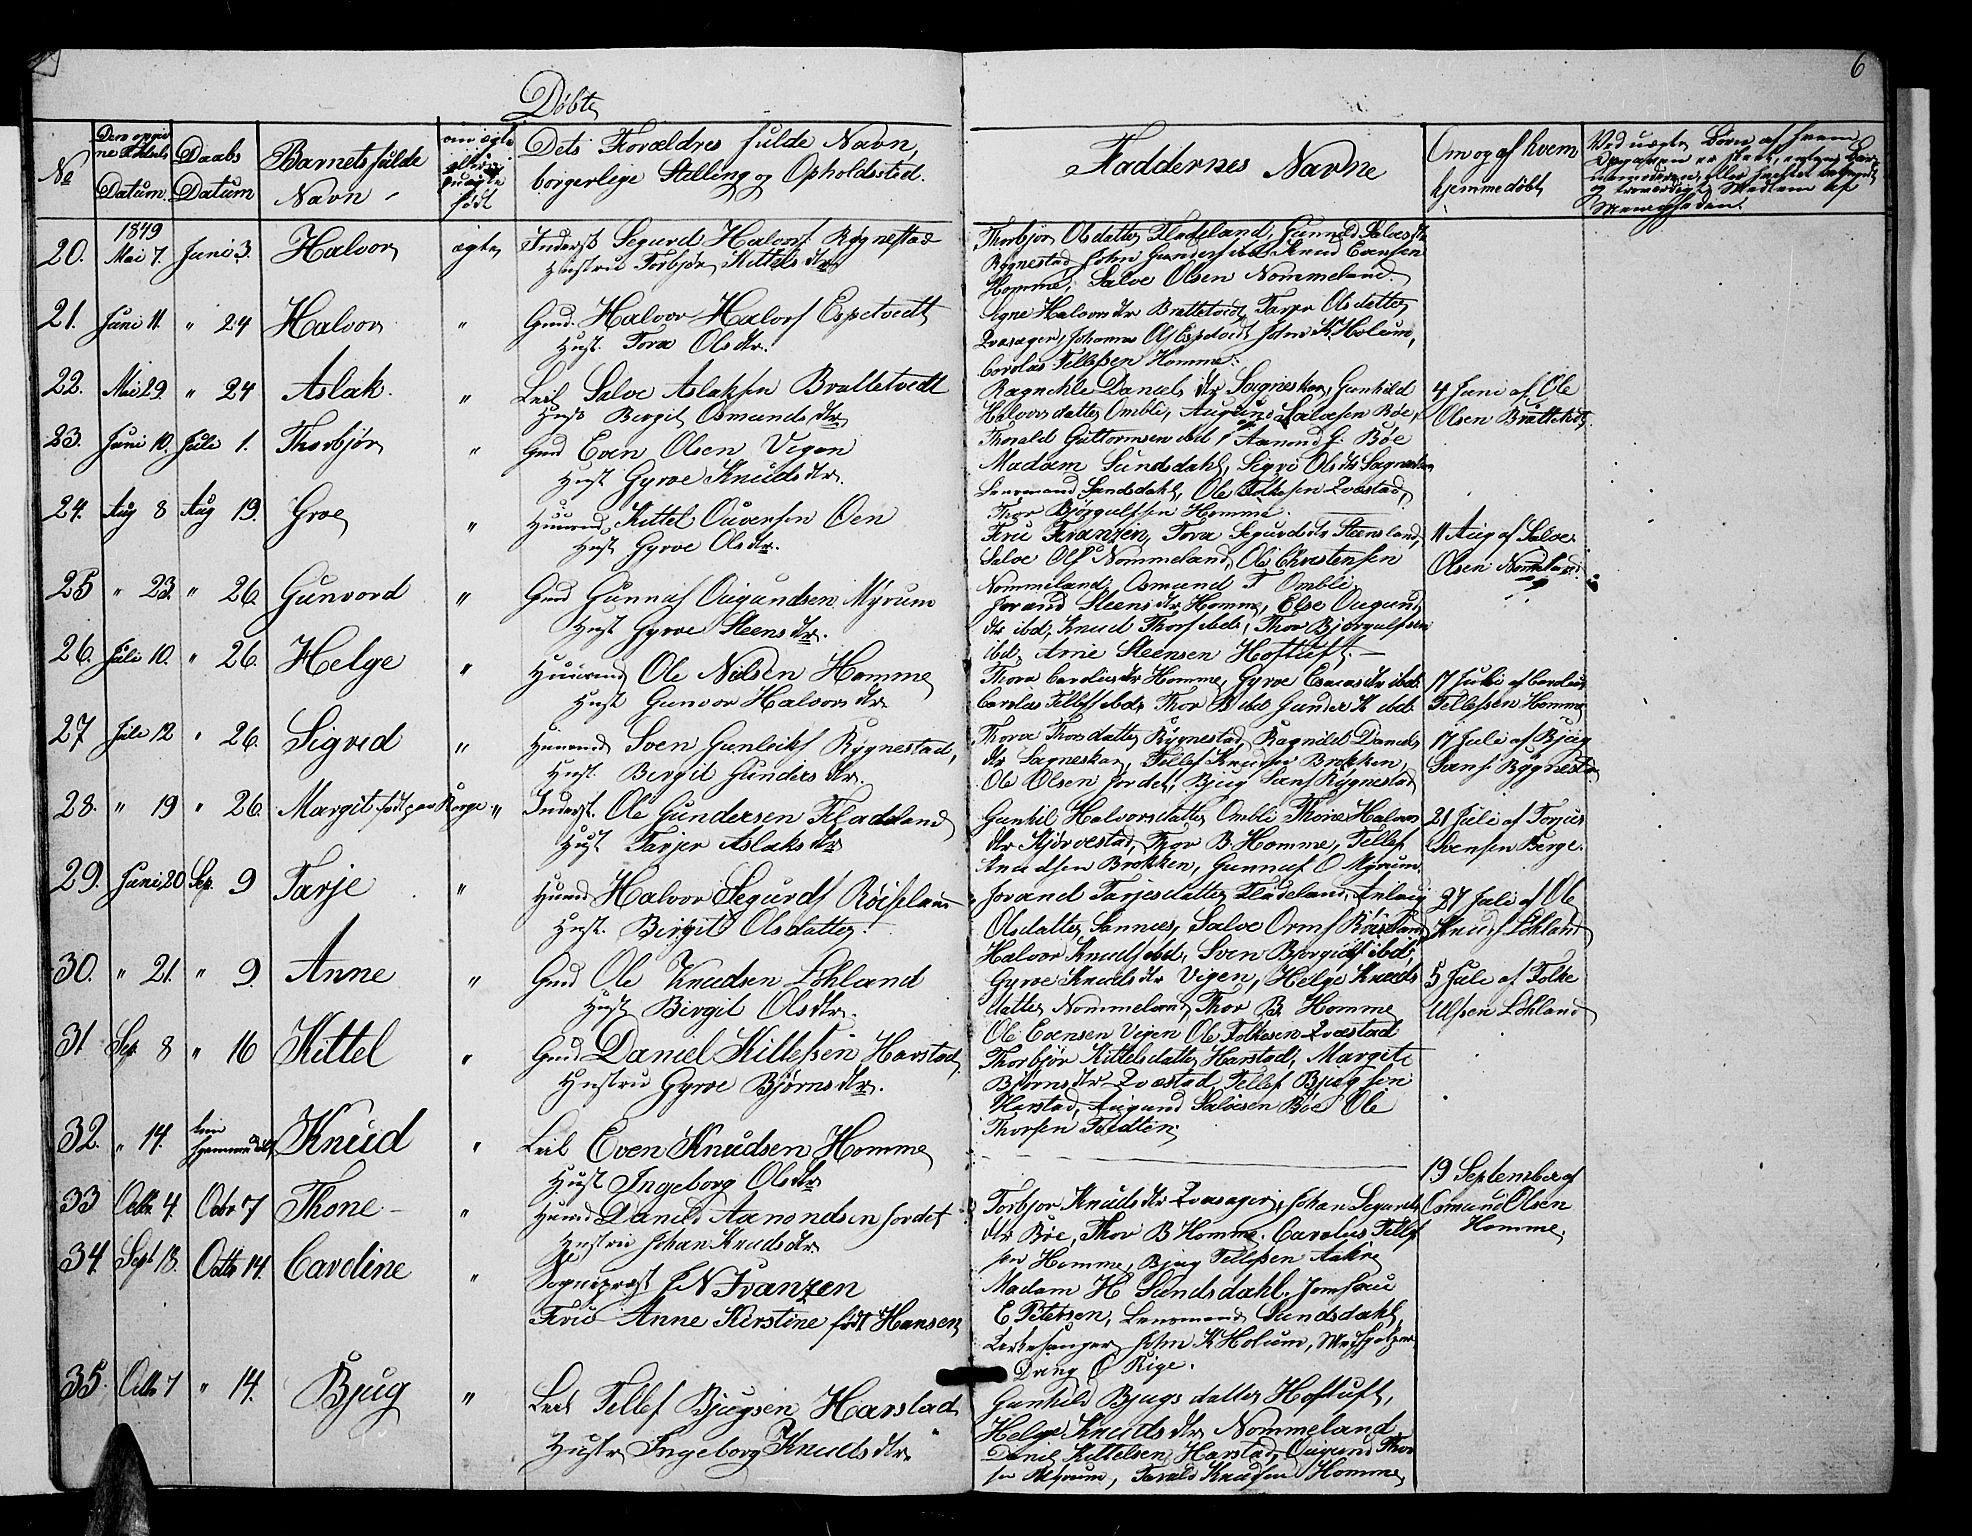 6
Döbte
No
Datum
Daabs
Datum
Barnets fulde
Navn
Dets Forældres fulde Navn,
borgerlige Stelling og Opholdssted.
Faddernes Navne
Om og af hvem
hjemmedöbt
1849
20. Mai 7. Juni 3. Halvor ægte Inderst Segurd Halvors Rygnestad
Hustru Torbjör Kittels dtr
Thorbjör Olsdatter Fladeland, Gunnild Salves dtr
Rygnestad John Gunders ibd Knud Evensen
Homme, Salve Olsen Nommeland.
21. Juni 11. " 24 Halvor " Gmd. Halvor Halvors Espetvedt
Hust. Tora Ols dtr.
Signe Halvors dtr Brattetvedt Tarjer Olsdatter
Qvasager, Johannes Ols Espetvedt John K Holum,
Carolus Tellefsen Homme.
22. Mai 29. " 24 Aslak. " Leil Salve Aslaksen Brattetvedt
Hust Birgit Osmunds dtr
Ragnehle Daniels dtr Sagneskar, Gunhild
Halvorsdatter Omlie, Augund Salvesen Böe,
Thorald Guttormsen ibd Aanond G. Böe
4 Juni af Ole
Olsen Brattetvedt
23. Juni 10. Juli 1. Thorbjör " Gmd Even Olsen Vigen
Hust Gyroe Knuds dtr.
Madam Sundsdahl, Sigri Ols dtr Sagneskar
Lensmand Sundsdahl, Ole Folkesen Qvæstad,
Thor Björgulfsen Homme.
24. Aug 8 Aug 19. Groe " Huusmd. Kittel Ouversen Öen
Hust Gyroe Olsdtr.
Fru Franzen, Tora Segurds dtr Steensland,
Salve Ols Nommeland, Ole Christensen
Nommeland, Osmund T Omlie.
11 Aug af Salve
Olsen Nommeland.
25 " 23. " 26. Gunvord " Gmd Gunnuf Ougundsen Myrum
Hust Gyroe Steens dtr.
Jorand Steens dtr Homme, Else Ougunds
dtr ibd, Knud Thors ibd, Thor Björgulfsen
ibd, Arne Steensen Hoftuft.
26. Juli 10. " 26. Helge " Huusmd Ole Nilsen Homme
Hust Gunvor Halvors dtr
Thora Carolus dtr Homme, Gyroe Esaias dtr ibd.
Carolus Tellefs ibd, Thor B ibd Gunder K ibd.
17 Juli af Carolus
Tellefsen Homme
27 Juli 12 " 26. Sigrid " Huusmd Sven Gunleiks Rygnestad,
Hust. Birgit Gunders dtr.
Thora Thorsdatter Rygnestad, Ragnild Daniels
dtr Sagneskar, Tellef Knudsen Brokken,
Ole Olsen Jordet, Bjug Hans Rygnestad
17 Juli af Bjug
Hans Rygnestad
28. " 19 " 26. Margit född paa Norge " Inderst. Ole Gundersen Fladeland
Hust. Tarjer Aslaks dtr
Gunhil Halvorsdatter Omlie Thone Halvors
dtr Kjörvestad, Thor B. Homme, Tellef
Knudsen Brokken, Gunnuf O Myrum.
21 Juli af Torjus
Svensen Berge.
29. Juni 20 Sep. 9 Tarje " Huusmd Halvor Segurds Röisland
Hust. Birgit Olsdatter.
Jorand Tarjesdatter Fladeland, Anlaug
Olsdatter Sannes, Salve Orms Röisland
Halvor Knuds ibd, Sven Bjorguls ibd,
27 Juli af Ole
Knuds Löhland
30. " 21. " 9. Anne " Gmd Ole Knudsen Löhland
Hust Birgit Olsdtr.
Gyroe Knuds dtr Vigen, Helge Knuds
datter Nommeland, Thor B. Homme
Ole Evensen Vigen Ole Folkesen Qvæstad
5 Juli af Folke
Ulfsen Löhland
31 Sep. 8 " 16 Kittel " Gmd Daniel Kittelsen Harstad,
Hustru Gyroe Björns dtr.
Thorbjör Kittelsdatter Harstad, Margite
Björns dtr Qvæstad, Tellef Bjugsen
Harstad, Augund Salvesen Böe Ole
Thorsen Tvedten.
32. " 14. kun hjemmedöbt Knud " Leil Even Knudsen Homme
Hust Ingeborg Olsdtr
19 September af
Osmund Olsen
Homme.
33 Octbr 4. Octbr 7 Thone " Huusmd Daniel Aanondsen Jordet
Hustru Johan Knuds dtr
Torbjor Knuds dtr Qvasager, Johan Segurds
dtr Böe, Thor B Homme. Carolus Tellef
sen Homme, Bjug Tellefsen Aakre
34. Sept 18. Octbr 14. Caroline " Sogneprest N Franzen
Frue Anne Kirstine född Hansen
Madam H Sundsdahl. Jomfrue
E Petersen, Lensmand Sundsdahl,
Kirkesanger John K Holum,
Dreng O Rige.
35. Octbr 7 " 14. Bjug " Leil Tellef Bjugsen Harstad
Hustr Ingeborg Knudsdtr
Gunhild Bjugs datter Hoftuft,
Helge Knuds dtr Nommeland
Daniel Kittelsen Harstad, Ougund Thor
sen Myrum, Tarald Knudsen Homme.